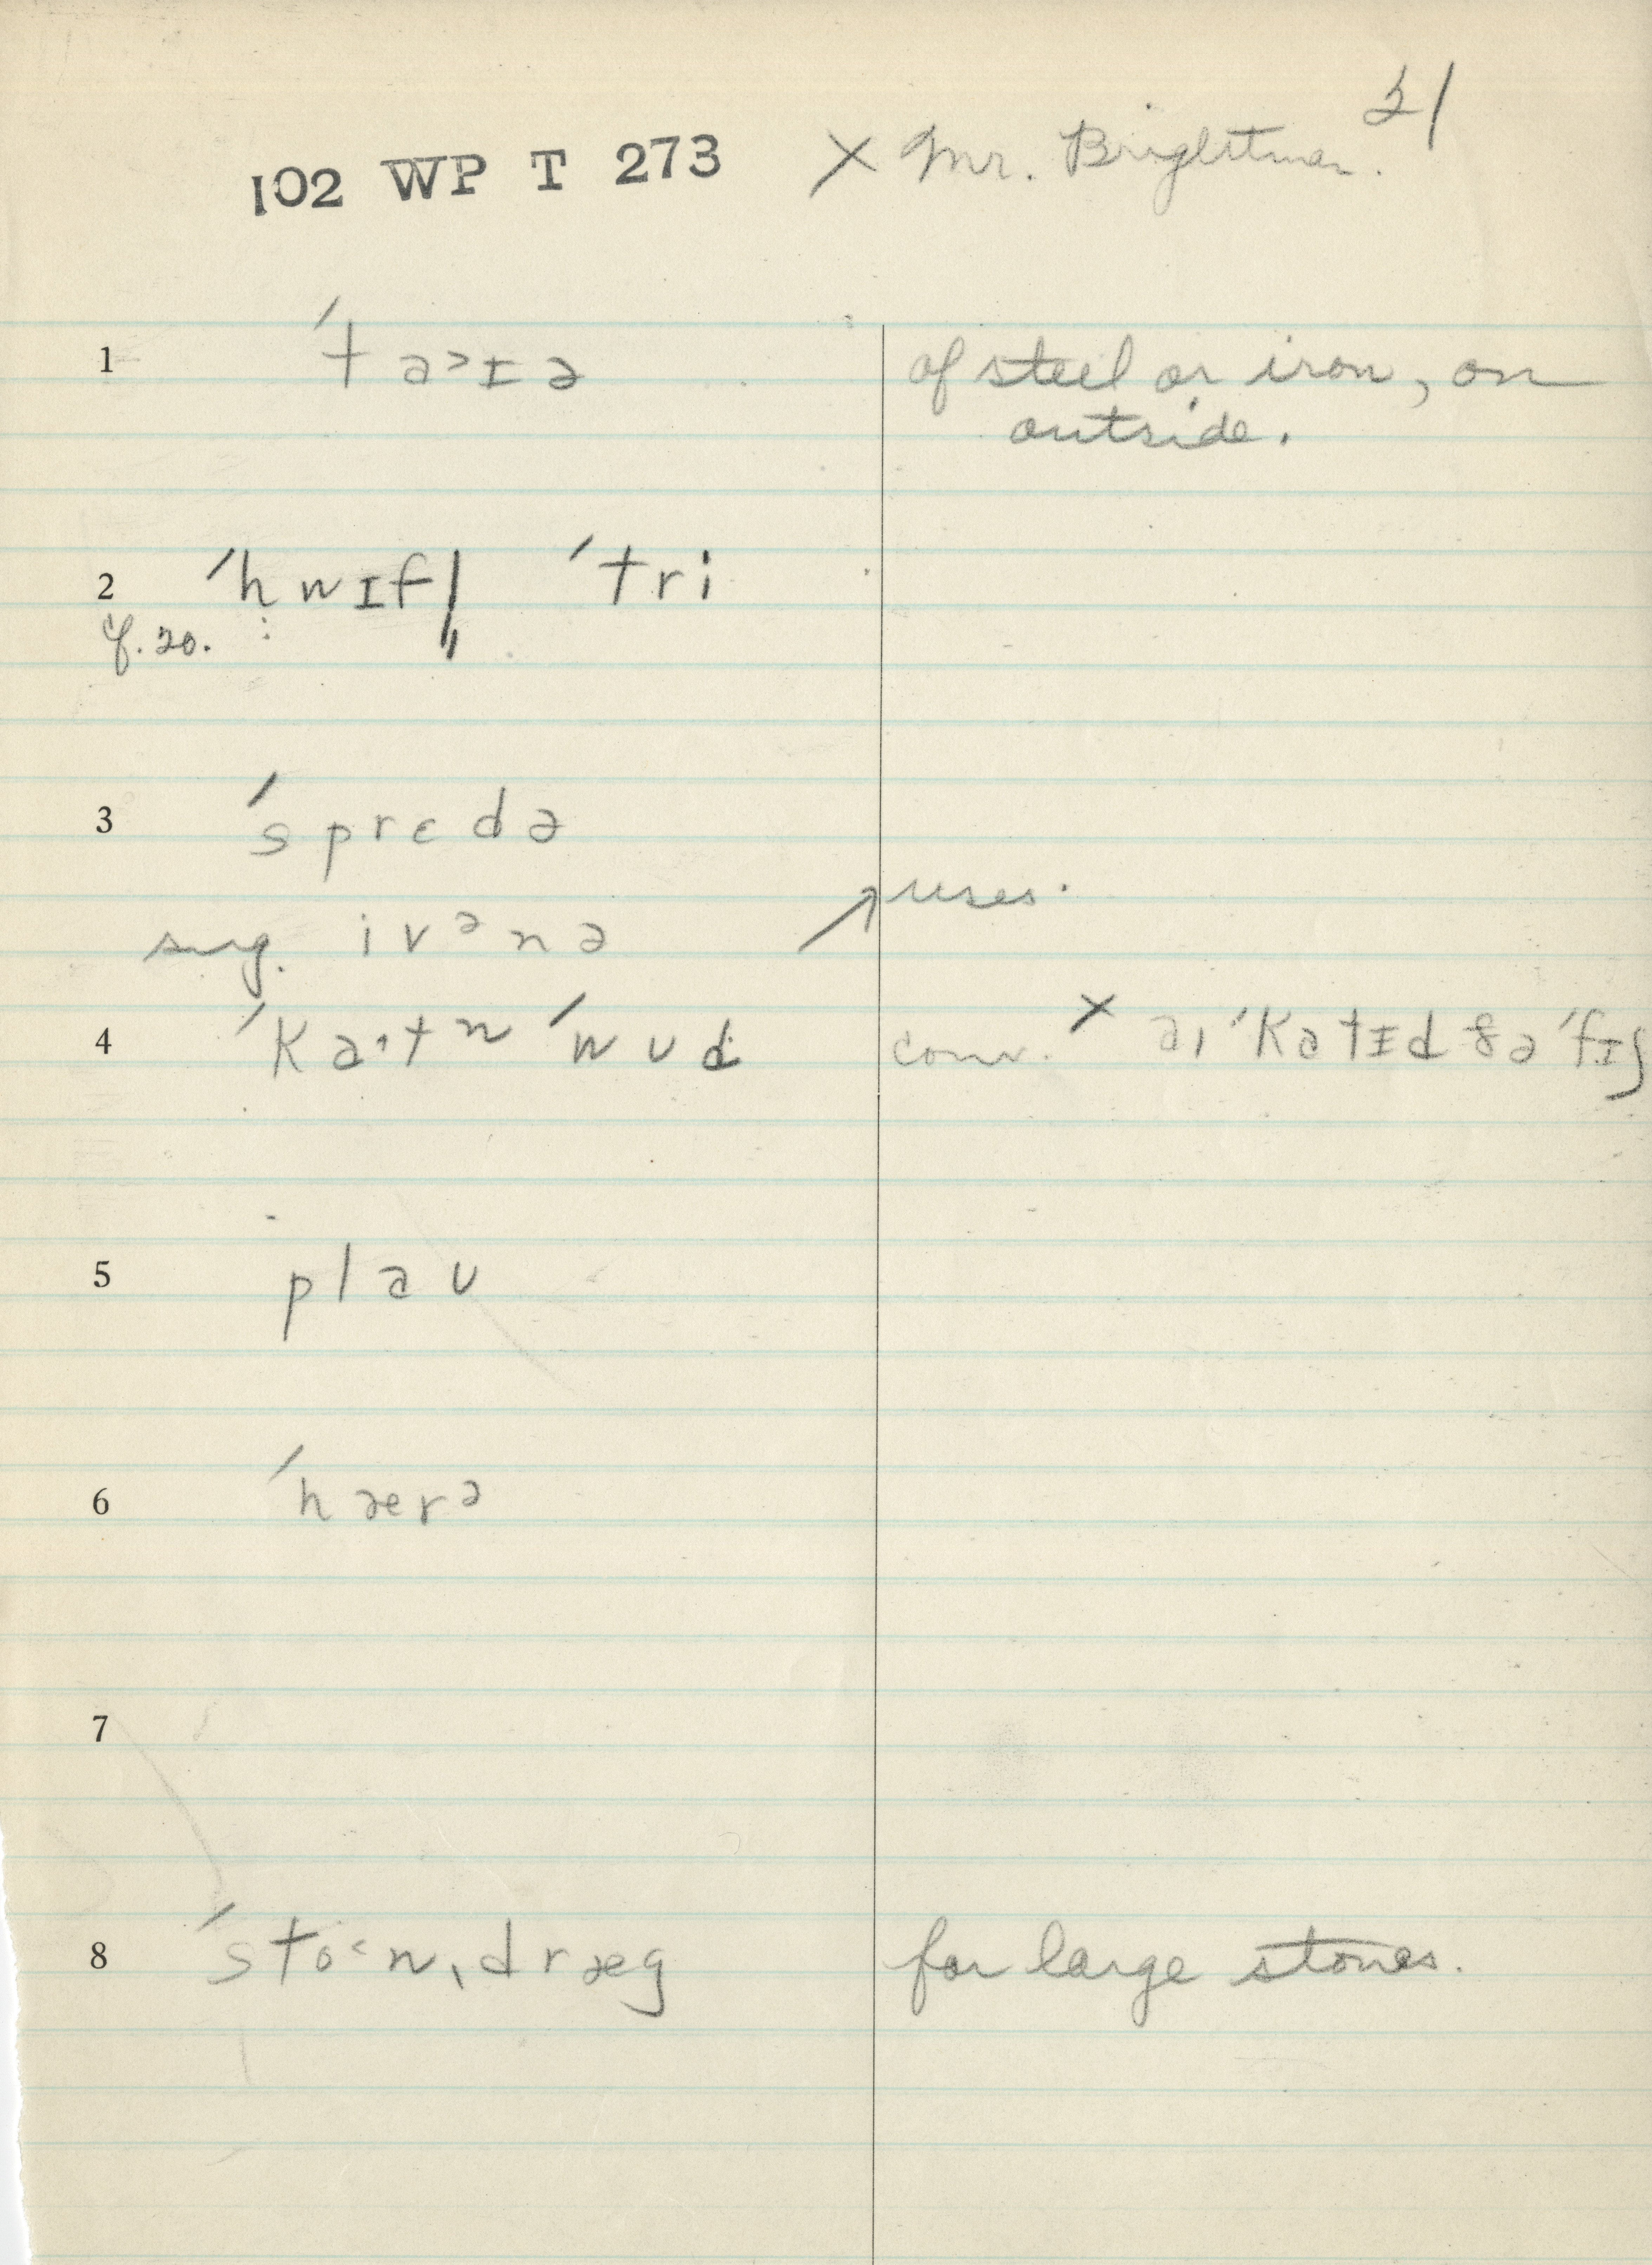 21
102 WP T 273 × Mr. Brightman.
1 ˈtaɪə of steel or iron, on
outside.
2 ˈhwɪfl̩ ˈtri
cf. 20.
3 ˈsprɛdə
↗ uses.
sug. ivənə
4 ˈkatn ˈwud conv. × aɪ ˈkatɪd ðə ˈfɪʃ
5 plaʊ
6 ˈhærə
7
8 ˈstoˑn ˌdræg for large stones.